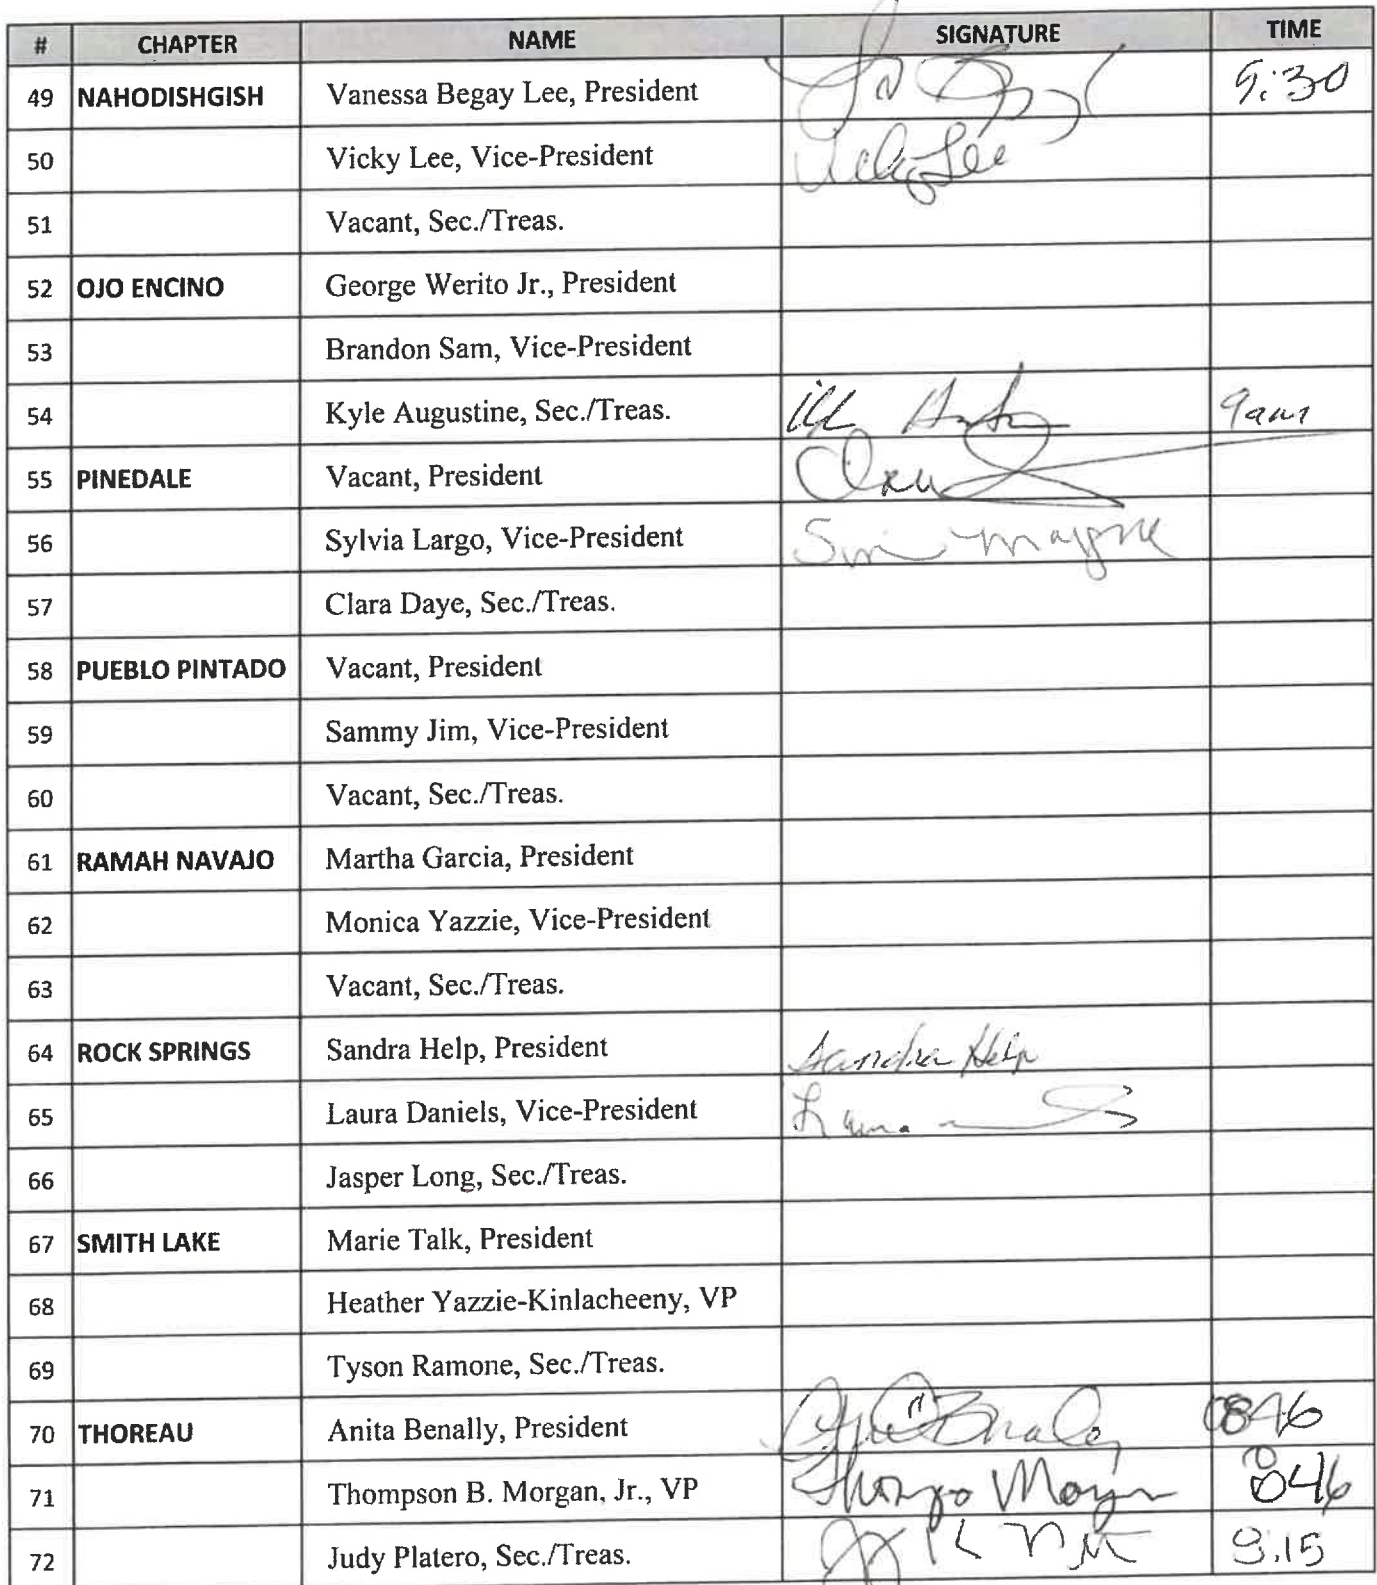 # CHAPTER NAME SIGNATURE TIME
49 NAHODISHGISH Vanessa Begay Lee, President 9:30
50 Vicky Lee, Vice-President Vicky Lee
51 Vacant, Sec./Treas.
52 OJO ENCINO George Werito Jr., President
53 Brandon Sam, Vice-President
54 Kyle Augustine, Sec./Treas. 9am
55 PINEDALE Vacant, President
56 Sylvia Largo, Vice-President
57 Clara Daye, Sec./Treas.
58 PUEBLO PINTADO Vacant, President
59 Sammy Jim, Vice-President
60 Vacant, Sec./Treas.
61 RAMAH NAVAJO Martha Garcia, President
62 Monica Yazzie, Vice-President
63 Vacant, Sec./Treas.
64 ROCK SPRINGS Sandra Help, President Sandra Help
65 Laura Daniels, Vice-President
66 Jasper Long, Sec./Treas.
67 SMITH LAKE Marie Talk, President
68 Heather Yazzie-Kinlacheeny, VP
69 Tyson Ramone, Sec./Treas.
70 THOREAU Anita Benally, President 0846
71 Thompson B. Morgan, Jr., VP 846
72 Judy Platero, Sec./Treas.